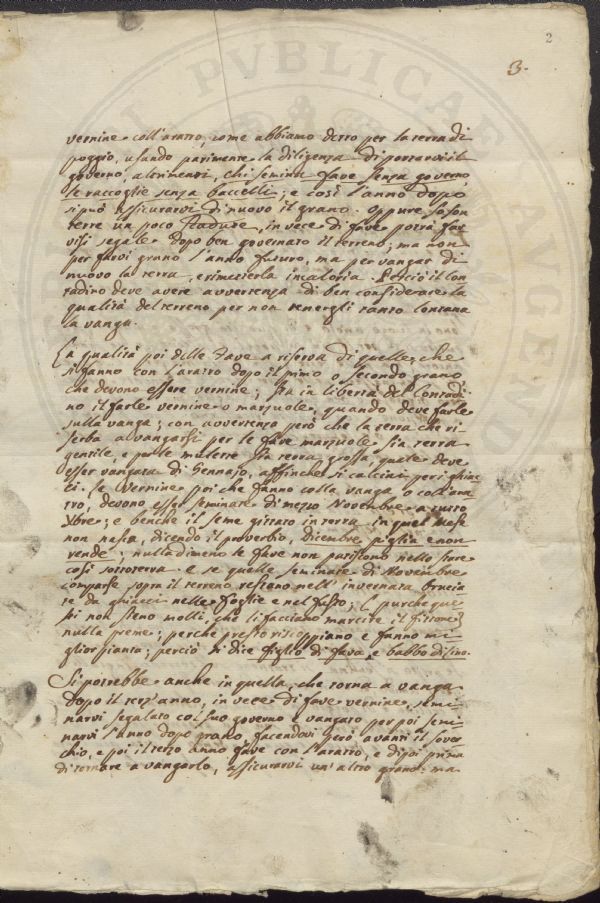 2
3.
vernine coll'aratro, come abbiamo detto per la terra di
poggio, usando parimente la diligenza di portarvi il
governo, altrimenti, chi semina fave senza governo
le raccoglie senza baccelli; e così l'anno dopo
si può assicurarvi di nuovo il grano. Oppure so son
terre un poco stadure, in vece di fave potrà far
visi segale dopo ben governato il terreno; ma non
per farvi grano l'anno futuro, ma per vangar di
nuovo la terra, e rimetterla in caloria. E acciò il Con
tadino deve avere avvertenza di ben considerare la
qualità del terreno per non tenergli tanto lontana
la vanga.
La qualità poi delle Fave a riserva di quelle, che
si fanno con l'aratro dopo il primo o secondo grano
che devono essere vernine; sta in libertà del Contadi
no il farle vernine o marzuole, quando deve farle
sulla vanga; con avvertenza però che la terra che ri
serba a vangarsi per le fave marzuole sia terra
gentile, e per le mulette sia terra grossa, quale deve
esser vangata di Gennajo, affinche si calcini per i ghiac
ci. Le Vernine poi che fanno colla vanga o coll'ara
tro, devono esser seminate di mezzo Novembre a tutto
Xbre; e benche il seme gittato in terra in quel mese
non nasca, dicendo il proverbio, dicembre piglia e non
rende; nulladimeno le fave non patiscono nello stare
così sotto terra. e se quelle seminate di Novembre
comparse sopra il terreno restano nell'invernata brucia
te da ghiacci nelle foglie e nel fusto; (purche que
sti non sieno molti, che li facciano marcire il fittone)
nulla preme; perche presto riscoppiano e fanno mi
glior pianta; perciò si dice figlio di fava, e babbo di lino.
Si potrebbe anche in quella, che torna a vanga
dopo il terz'anno, in vece di fave vernine, semi
narvi segalato col suo governo e vangato per poi semi
narvi l'anno dopo grano, facendovi però avanti il sover
chio, e poi il terzo anno fave con l'aratro, e dipoi prima
di tornare a vangarlo, assicurarvi un'altro grano: ma